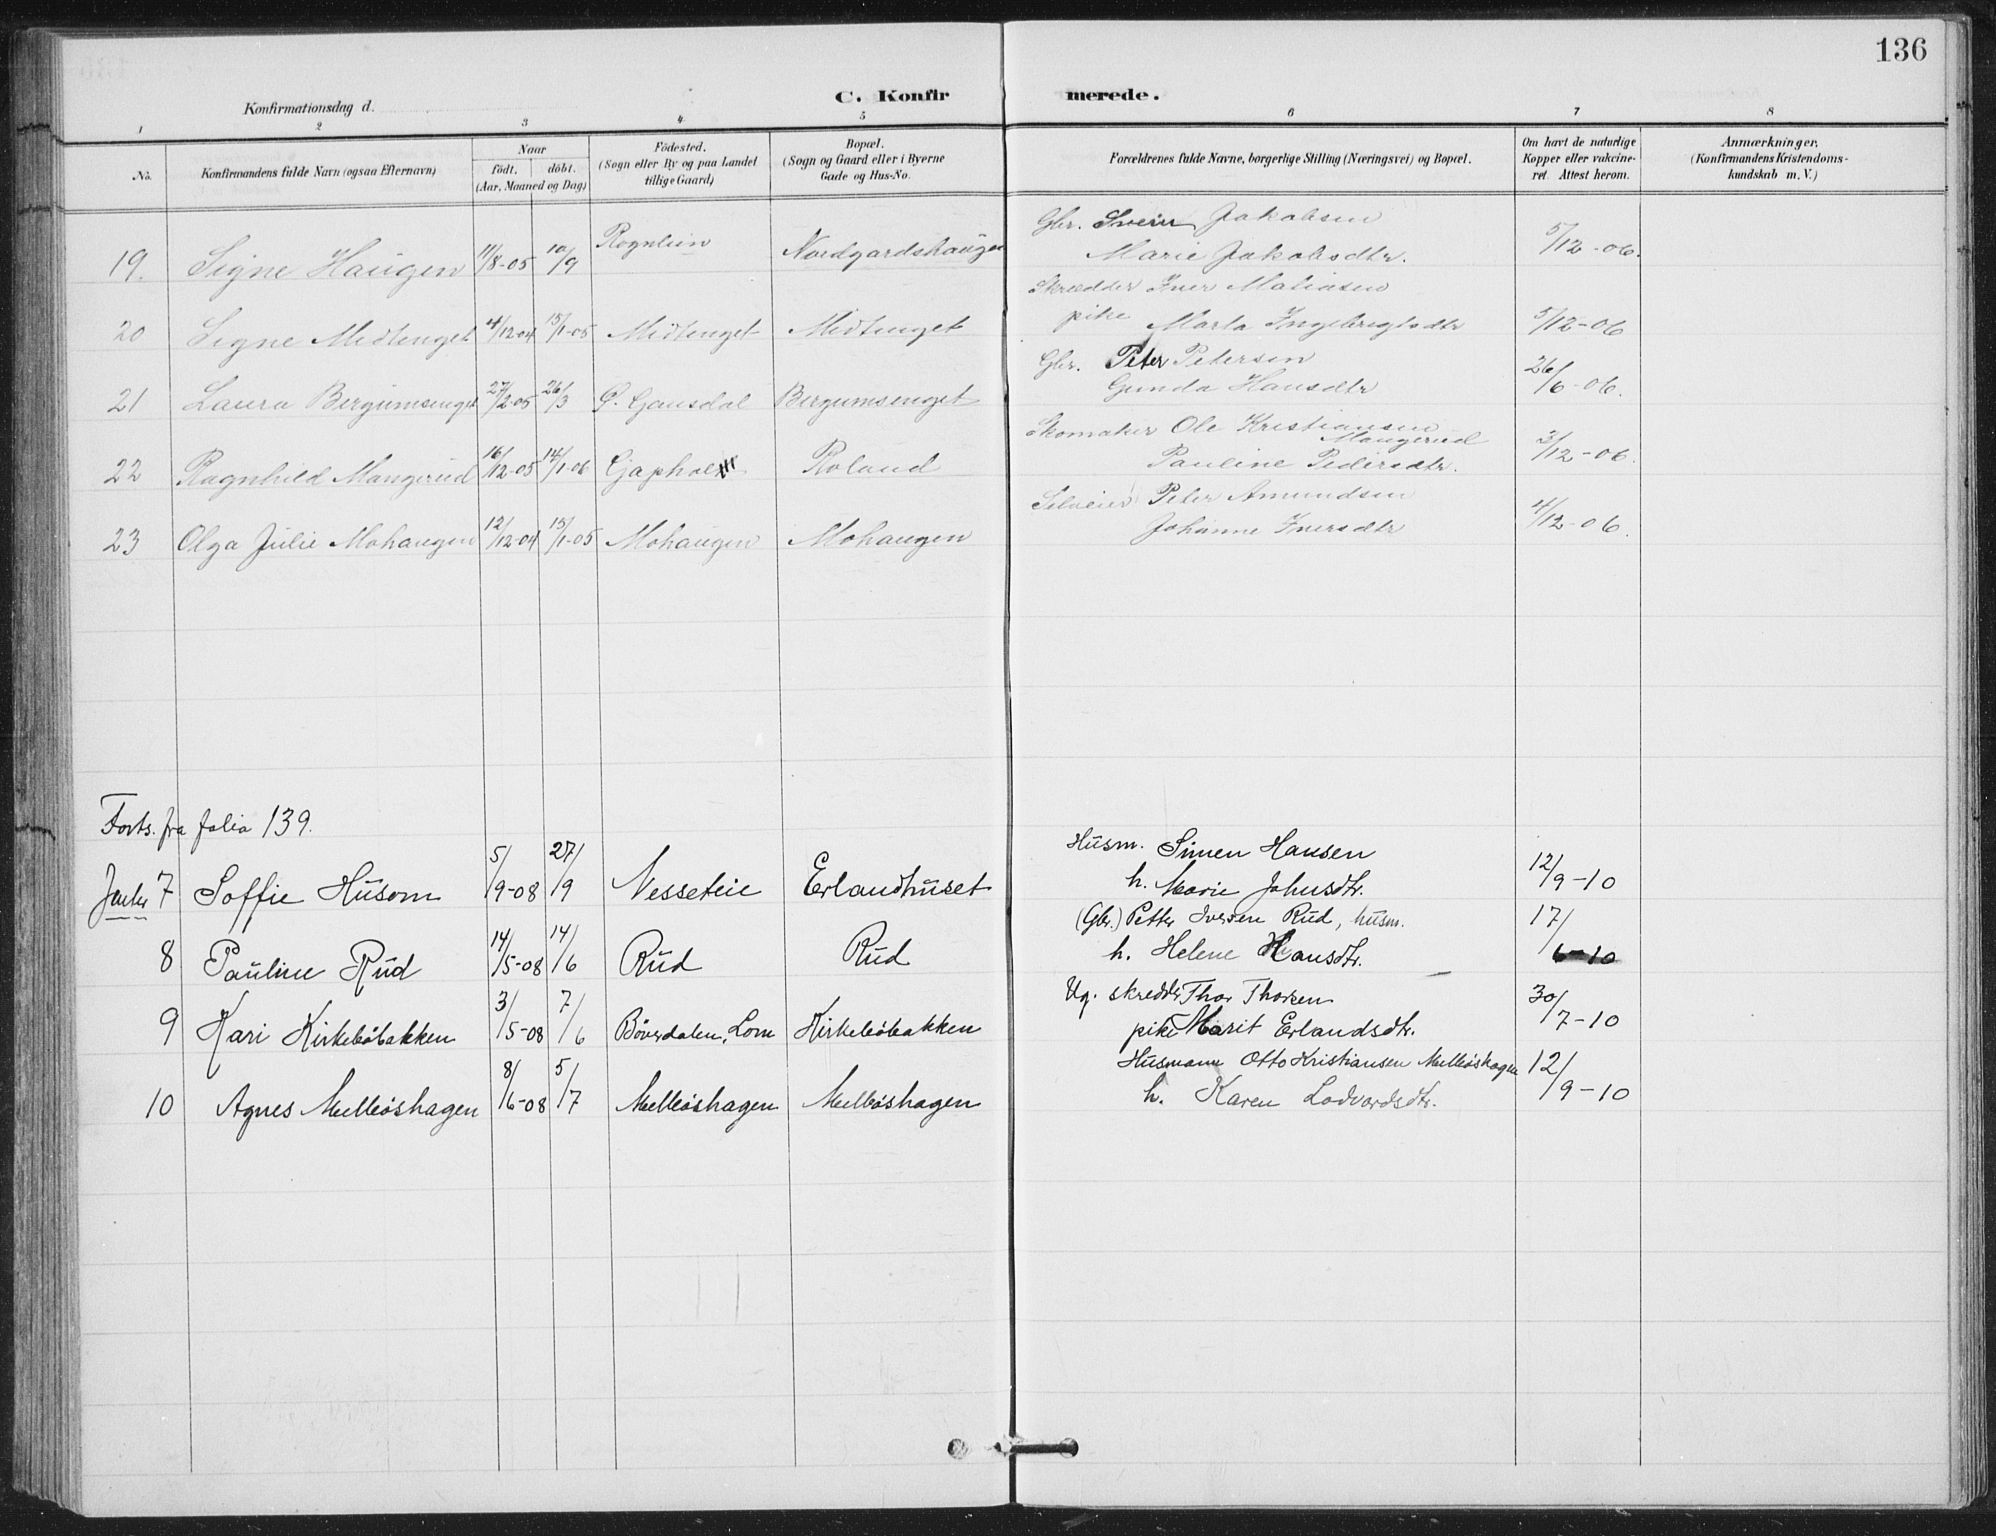 136
Konfirmationsdag d.
C. Konfirmerede.
1 2 3 4 5 6 7 8
No. Konfirmandens fulde Navn (ogsaa Efternavn) Naar født, døbt. (Aar, Maaned og Dag) Fødested. (Sogn eller By og paa Landet tillige Gaard) Bopæl. (Sogn og Gaard eller i Byerne Gade og Hus-No. Forældrenes fulde Navne, borgerlige Stilling (Næringsvei) og Bopæl. Om havt de naturlige Kopper eller vakcineret. Attest herom. Anmærkninger. (Konfirmandens Kristendomskundskab m. V.)
19. Signe Haugen 11/8-05 10/9 Rognlien Nordgardshaugen Gbr. Svein Jakobsen 5/12-06.
Marie Jakobsdtr.
20 Signe Midtenget 4/12-04 15/1-05 Midtenget Midtenget Skrædder Iver Matiasen 5/12-06
pike Marta Ingebrigtsdtr
21 Laura Bergumsenget 27/2-05 26/3 Ø. Gausdal Bergumsenget Gbr. Peter Petersen 26/6-06.
Gunda Hansdtr
22 Ragnhild Mangerud 16/12-05 14/1-06 Roland Skomaker Ole Kristiansen Mangerud 3/12-06.
Pauline Pedersdtr.
23 Olga Julie Mohaugen 12/12-04 15/1-05 Mohaugen Mohaugen Selveier Peter Amundsen 4/12-06.
Johanne Iversdtr
Forts. fra folio 139.
Jenter 7 Soffie Husom 5/9-08 27/9 Nesseteie Erlandhuset Husm. Simen Hansen 12/9-10
h. Marie Johnsdtr.
8 Pauline Rud 14/5-08 14/6 Rud Rud (Gbr.) Petter Iversen Rud, husm. 17/6-10
h. Helene Hansdtr.
9 Kari Kirkebøbakken 3/5-08 7/6 Bøverdalen, Lom Kirkebøbakken Ug. skredder Thor Thorsen 30/7-10
pike Marit Erlandsdtr.
10 Agnes Mælleøshagen 8/6-08 5/7 Mælleøshagen Mælleøshagen Husmann Otto Kristiansen Mælleøshagen 12/9-10
h. Karen Lodvardsdtr.